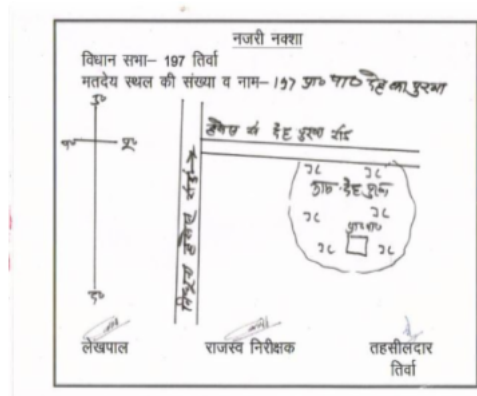 नजरी नक्शा
विधान सभा– 197 तिर्वा
मतदेय स्थल की संख्या व नाम– 197 प्रा० पा० देह का पुरवा
उ०
प० पू०
द०
से देह पुरवा रोड
ग्राम देह पुरवा
प्रा० पा०
लेखपाल राजस्व निरीक्षक तहसीलदार
तिर्वा